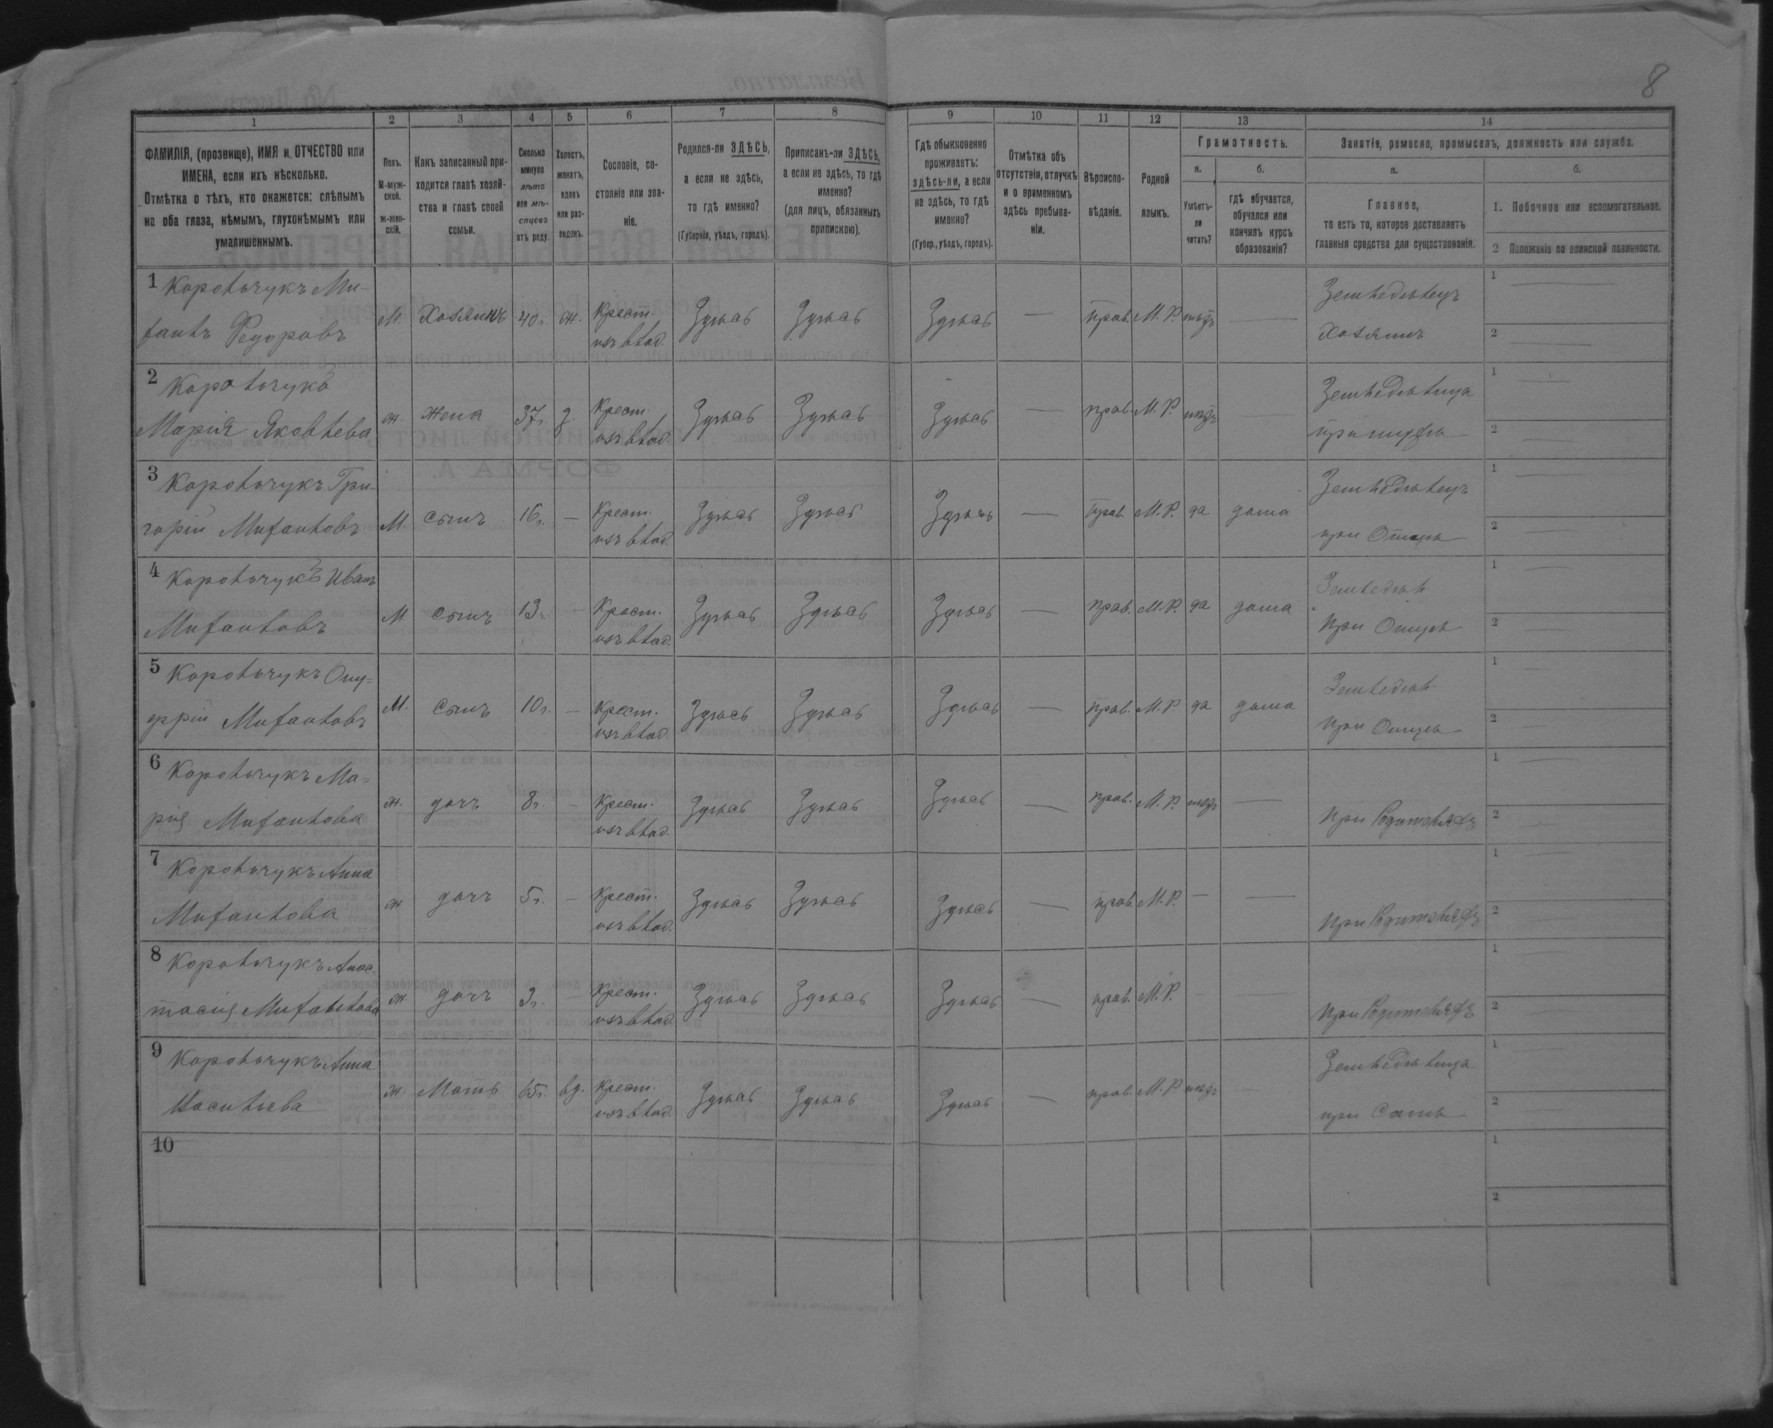 8
1 2 3 4 5 6 7 8 9 10 11 12 13 14
ФАМИЛІЯ, (прозвище), ИМЯ и ОТЧЕСТВО или
ИМЕНА, если ихъ нѣсколько.
Отмѣтка о тѣхъ, кто окажется: слѣпымъ
на оба глаза, нѣмымъ, глухонѣмымъ или
умалишеннымъ.
Полъ.
М-муж-
ской.
ж-жен-
скій.
Какъ записанный при-
ходится главѣ хозяй-
ства и главѣ своей
семьи.
Сколько
минуло
лѣтъ
или мѣ-
сяцевъ
отъ роду.
Холостъ,
женатъ,
вдовъ
или раз-
веденъ.
Сословіе, со-
стояніе или зва-
ніе.
Родился-ли ЗДѢСЬ,
а если не здѣсь,
то гдѣ именно?
(Губернія, уѣздъ, городъ).
Приписанъ-ли ЗДѢСЬ,
а если не здѣсь, то гдѣ
именно?
(для лицъ, обязанныхъ
припискою).
Гдѣ обыкновенно
проживаетъ:
здѣсь-ли, а если
не здѣсь, то гдѣ
именно?
(Губер., уѣздъ, городъ).
Отмѣтка объ
отсутствіи, отлучкѣ
и о временномъ
здѣсь пребыва-
ніи.
Вѣроиспо-
вѣданіе.
Родной
языкъ.
Грамотность.
а.
Умѣетъ-
ли
читать?
б.
гдѣ обучается,
обучался или
кончилъ курсъ
образованія?
Занятіе, ремесло, промыселъ, должность или служба.
а.
Главное,
то есть то, которое доставляетъ
главныя средства для существованія.
б.
1. Побочное или вспомогательное.
2 Положеніе по воинской повинности.
1 Коровчукъ Ми- Земледѣлецъ 1
Федоровъ М. Хозяинъ 40 г. ж. Крест. Здѣсь Здѣсь Здѣсь — прав. М. Р. — хозяинъ 2
2 Коровчукъ Земледѣлица 1
Марія Яковлева ж жена 37 г. з. Крест. Здѣсь Здѣсь Здѣсь — прав. М. Р. — при мужѣ 2
3 Коровчукъ Гри- Земледѣлецъ 1
горій М сынъ 16 г. — Крест. Здѣсь Здѣсь Здѣсь — прав. М. Р. да дома при Отцѣ 2
4 Коровчукъ Иванъ Земледѣл 1
М сынъ 13 — Крест. Здѣсь Здѣсь Здѣсь — прав. М. Р. да дома при Отцѣ 2
5 Коровчукъ Ону= Земледѣл 1
фрій М. сынъ 10 г. — Крест. Здѣсь Здѣсь Здѣсь — прав. М. Р. да дома при Отцѣ 2
6 Коровчукъ Ма= 1
рія ж. дочь 8 г. — Крест. Здѣсь Здѣсь Здѣсь — прав. М. Р. — при Родителяхъ 2
7 Коровчукъ Анна 1
ж дочь 5 г. — Крест. Здѣсь Здѣсь Здѣсь — прав. М. Р. — — при Родителяхъ 2
8 Коровчукъ Анас- 1
тасія ж дочь 3 г. — Крест. Здѣсь Здѣсь Здѣсь — прав. М. Р. — — при Родителяхъ 2
9 Коровчукъ Анна Земледѣлица 1
ж Мать 65 г. вд. Крест. Здѣсь Здѣсь Здѣсь — прав. М. Р — при Сынѣ 2
10 1
2